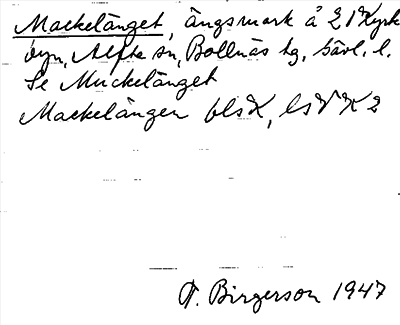 Mackelänget, ängsmark å 21 Kyrk
byn, Alfta sn, Bollnäs tg, Gävl. l.
Se Muckelänget
Mackelängen
T. Birgerson 1947